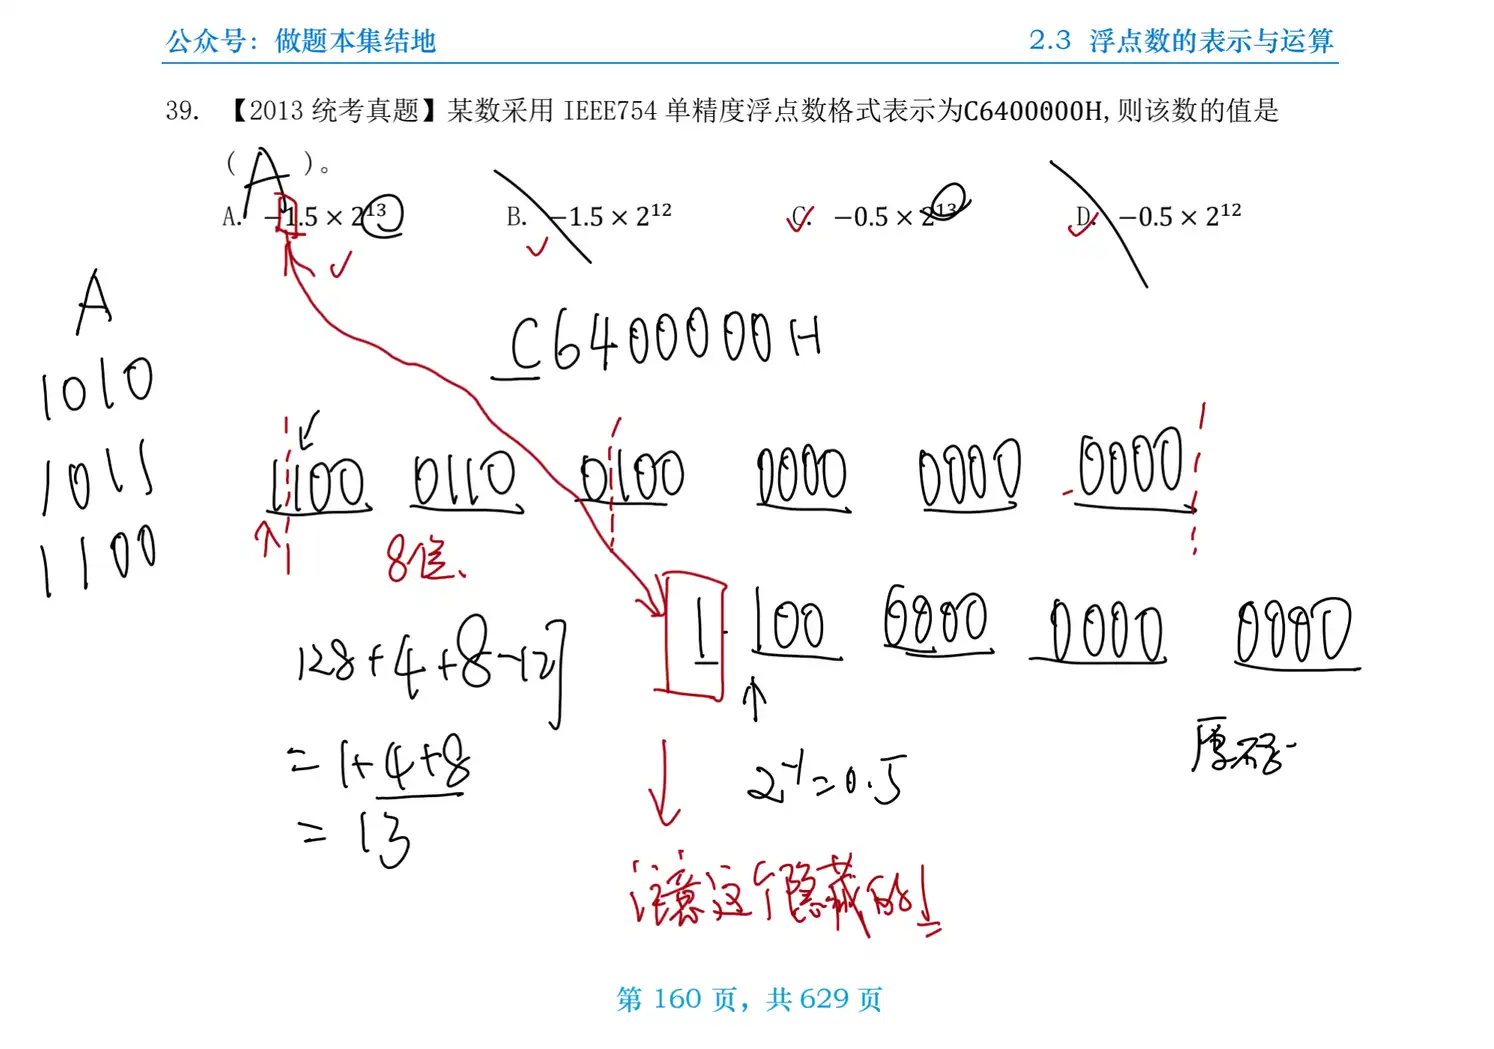 公众号：做题本集结地
2.3 浮点数的表示与运算
39. 【2013 统考真题】某数采用 IEEE754 单精度浮点数格式表示为C6400000H,则该数的值是
( A )。
A. −1.5 × 2¹³ B. −1.5 × 2¹² C. −0.5 × 2¹³ D. −0.5 × 2¹²
A
1010
1011
1100
C6400000H
1100 0110 0100 0000 0000 0000
8位
1. 100 0000 0000 0000
128+4+8-127
=1+4+8
=13
2⁻¹=0.5
原码
注意这个隐藏的1
第 160 页，共 629 页